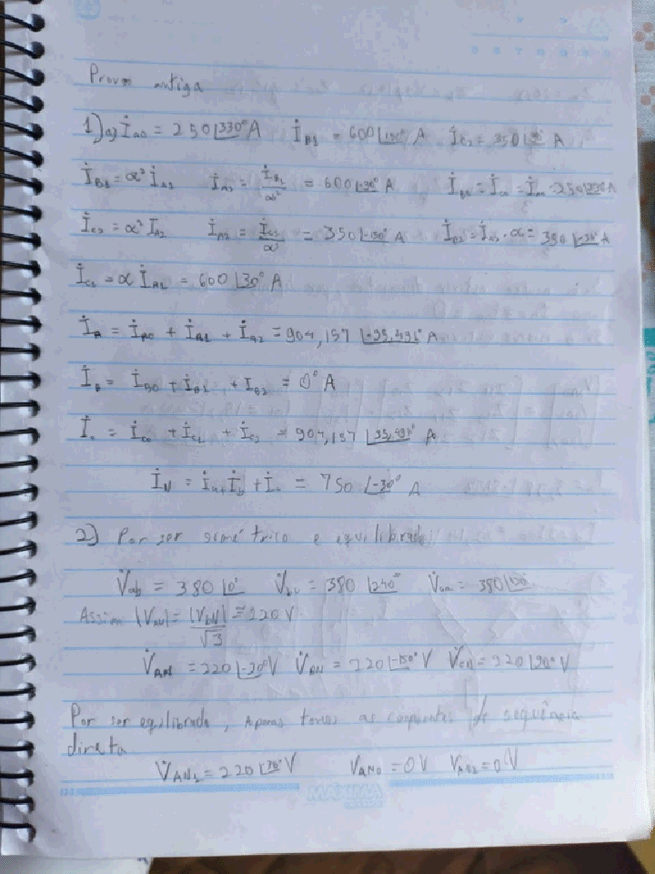 Prova antiga
1) a) İA0 = 250∠330° A   İB1 = 600∠150° A   İC2 = 350∠90° A
İB1 = α² İA1   İA1 = İB1/α² = 600∠-90° A   İB0 = İC0 = İA0 = 250∠330° A
İC2 = α² İA2   = 350∠-150° A   = 350∠-30° A
İC1 = α İA1 = 600∠30° A
İA = İA0 + İA1 + İA2 = 904,157
İB = İB0 + İB1 + İB2 = 0° A
+ İC1 + İC2 = 904,157
İN = + İB + = 750∠-30° A
2) Por ser simétrico e equilibrado
V̇ab = 380∠0°   = 380∠240°   = 380
Assim = ≅ 220 V
√3
V̇AN = 220∠-30° V   V̇BN = 220∠-150° V   V̇CN = 220∠90° V
Por ser equilibrado, apenas temos as componentes de sequência
direta
V̇AN1 = 220 V   VAN0 = 0 V   VAN2 = 0 V
MÁXIMA